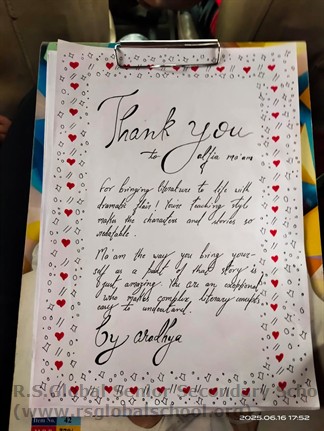 Thank you
to alfia ma'am
for bringing literature to life with
dramatic flair! Your teaching style
makes the characters and stories so
relatable.
Ma'am the way you bring your-
self as a part of that story is
just amazing. You are an exceptional
who makes complex literary concepts
easy to understand.
by aradhya
R.S. Global Senior Secondary Scho
(www.rsglobalschool.
Item No.
2025.06.16 17:52